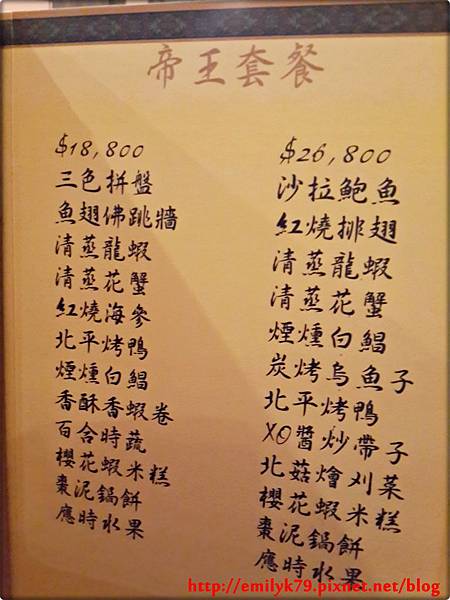 帝王套餐
$18,800
三色拼盤
魚翅佛跳牆
清蒸龍蝦
清蒸花蟹
紅燒海參
北平烤鴨
煙燻白鯧
香酥香蝦卷
百合時蔬
櫻花蝦米糕
棗泥鍋餅
應時水果
$26,800
沙拉鮑魚
紅燒排翅
清蒸龍蝦
清蒸花蟹
煙燻白鯧
炭烤烏魚子
北平烤鴨
XO醬炒帶子
北菇燴刈菜
櫻花蝦米糕
棗泥鍋餅
應時水果
http://emilyk79.pixnet.net/blog